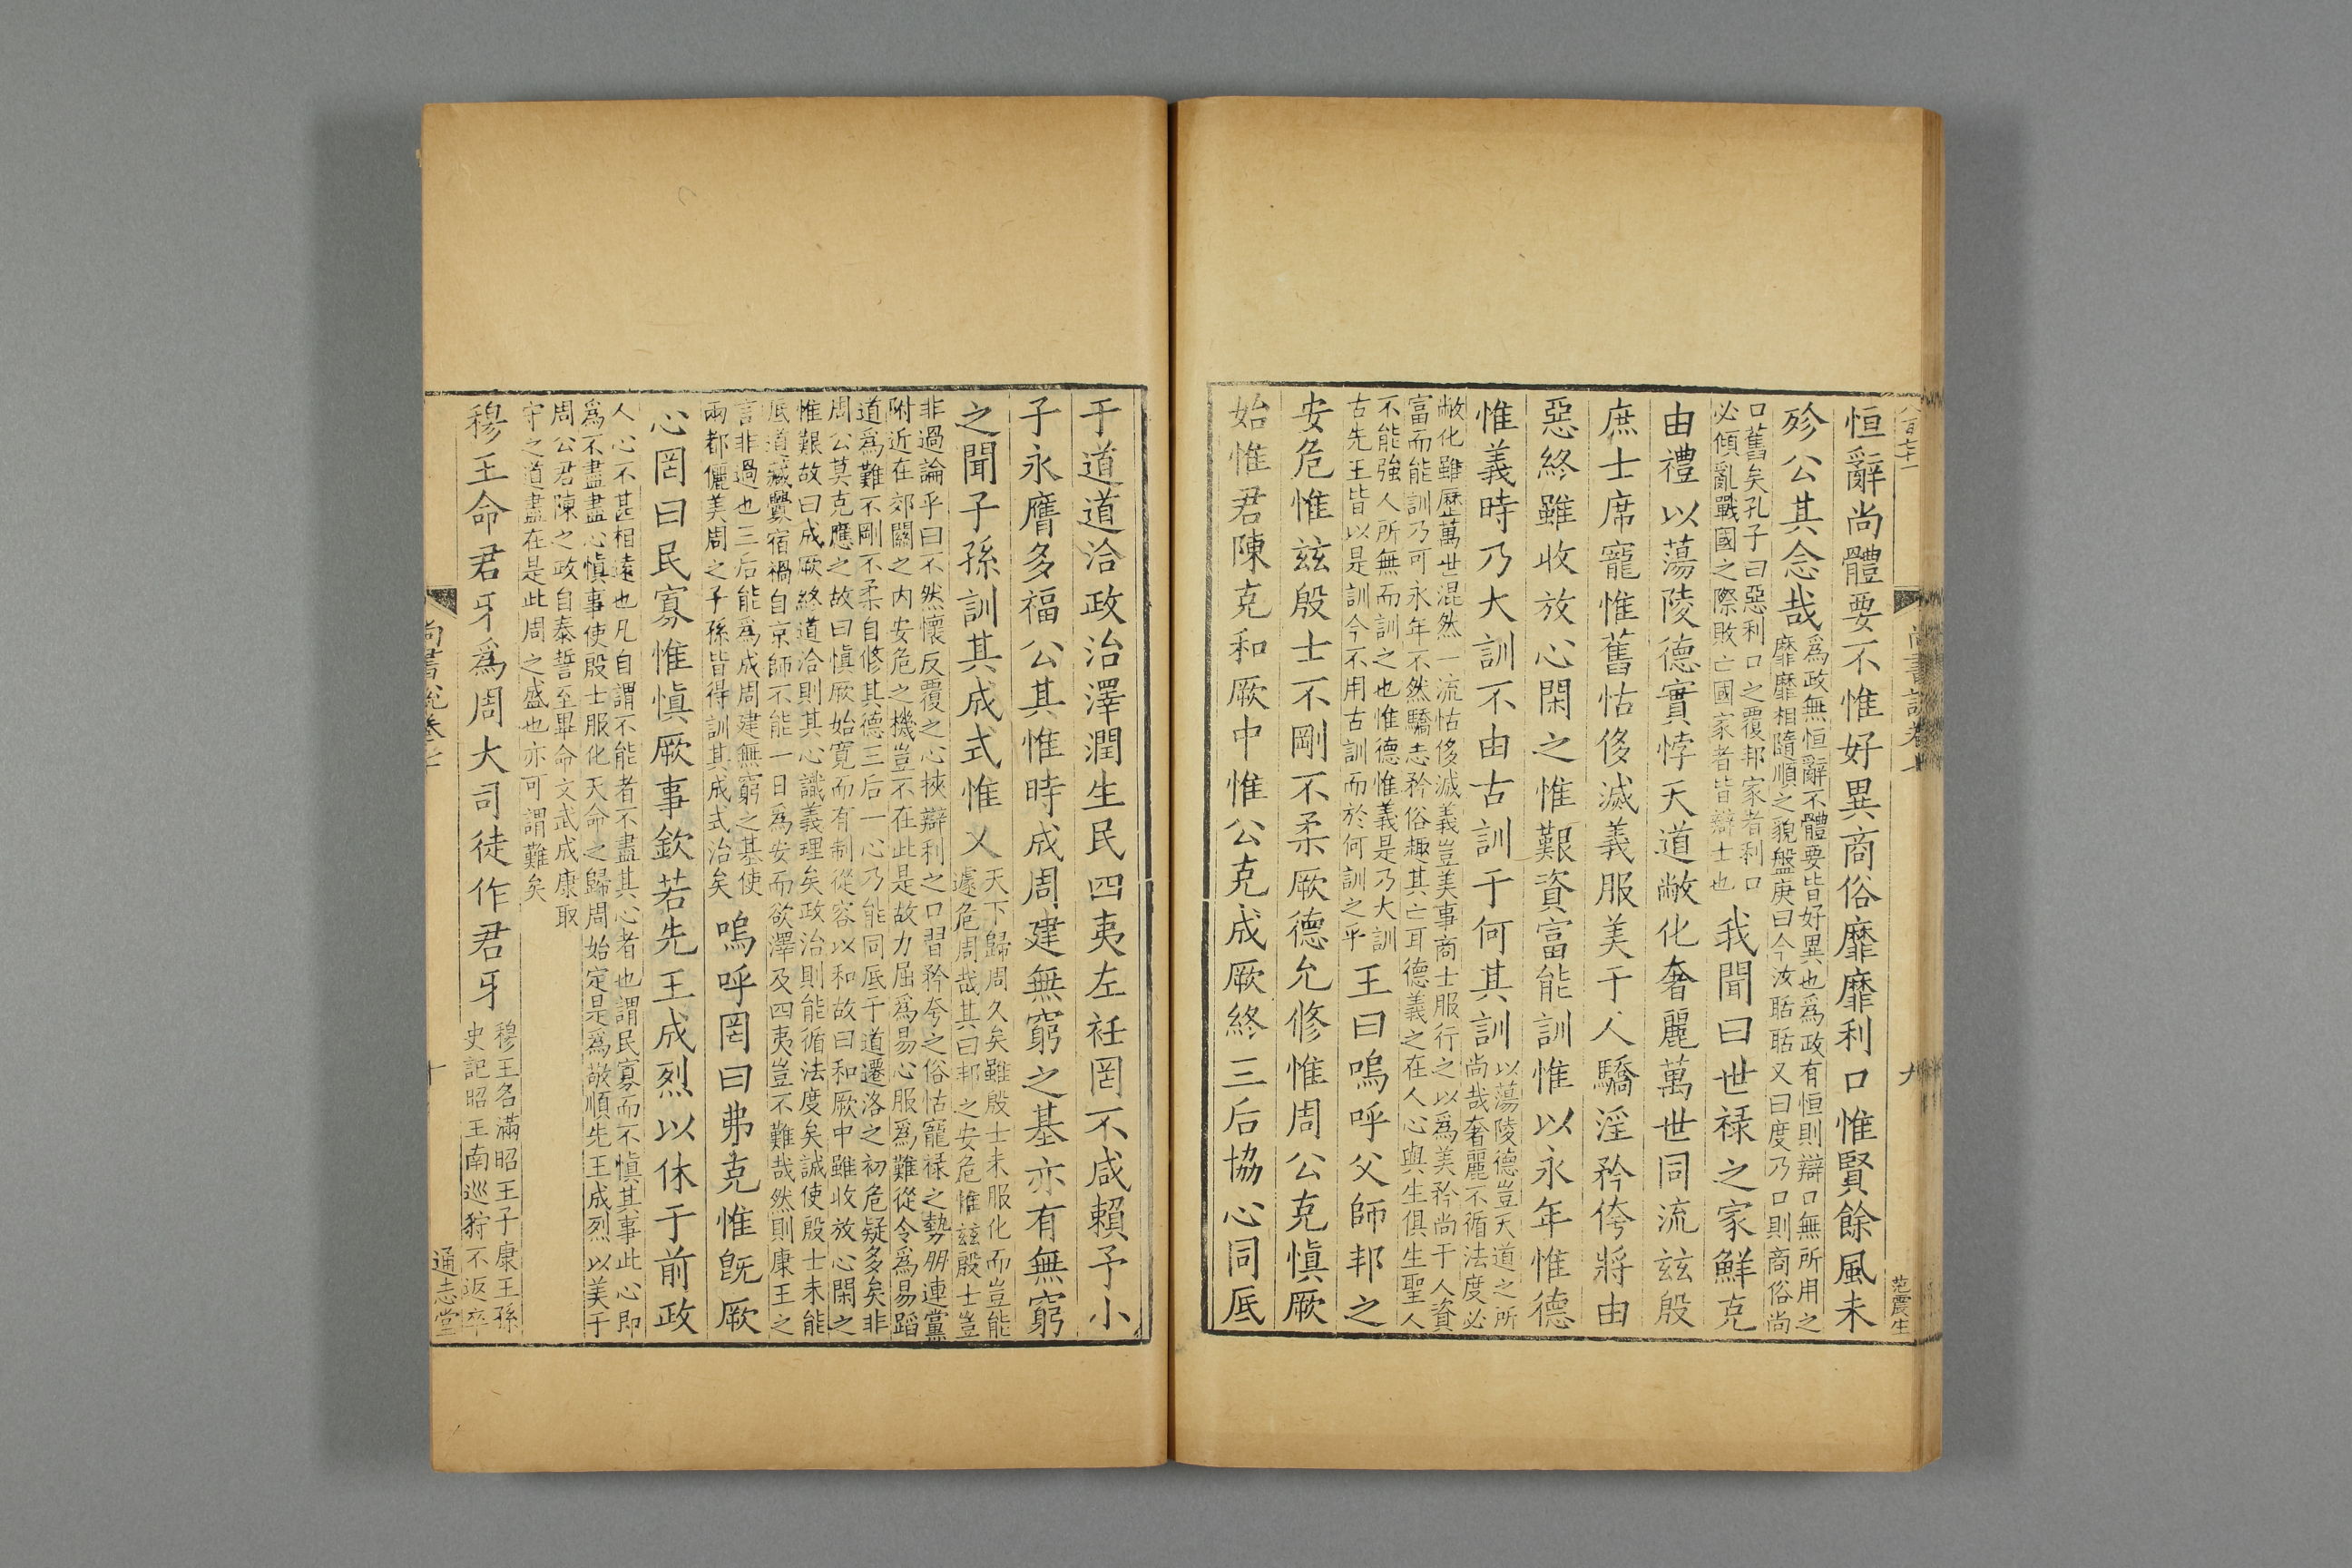 尚書說卷七
九
范震生
恒辭尚體要不惟好異商俗靡靡利口惟賢餘風未
殄公其念哉爲政無恒辭不體要皆好異也爲政有恒則辯口無所用之
靡靡相隨順之貌盤庚曰今汝聒聒又曰度乃口則商俗尚
口舊矣孔子曰惡利口之覆邦家者利口
必傾亂戰國之際敗亡國家者皆辯士也我聞曰世祿之家鮮克
由禮以蕩陵德實悖天道敝化奢麗萬世同流玆殷
庶士席寵惟舊怙侈滅義服美于人驕淫矜侉將由
惡終雖收放心閑之惟艱資富能訓惟以永年惟德
惟義時乃大訓不由古訓于何其訓以蕩陵德豈天道之所
尚哉奢麗不循法度必
敝化雖歷萬世混然一流怙侈滅義豈美事商士服行之以爲美矜尚于人資
富而能訓乃可永年不然驕志矜俗趣其亡耳德義之在人心與生俱生聖人
不能強人所無而訓之也惟德惟義是乃大訓
古先王皆以是訓今不用古訓而於何訓之乎王曰嗚呼父師邦之
安危惟玆殷士不剛不柔厥德允修惟周公克愼厥
始惟君陳克和厥中惟公克成厥終三后協心同底
于道道洽政治澤潤生民四夷左衽罔不咸賴予小
子永膺多福公其惟時成周建無窮之基亦有無窮
之聞子孫訓其成式惟乂天下歸周久矣雖殷士未服化而豈能
遽危周哉其曰邦之安危惟玆殷士豈
非過論乎曰不然懷反覆之心挾辯利之口習矜夸之俗怙寵祿之勢朋連黨
附近在郊關之内安危之機豈不在此是故力屈爲易心服爲難從令爲易蹈
道爲難不剛不柔自修其德三后一心乃能同底于道遷洛之初危疑多矣非
周公莫克應之故曰愼厥始寬而有制從容以和故曰和厥中雖收放心閑之
惟艱故曰成厥終道洽則其心識義理矣政治則能循法度矣誠使殷士未能
底道藏釁宿禍自京師不能一日爲安而欲澤及四夷豈不難哉然則康王之
言非過也三后能爲成周建無窮之基使
兩都儷美周之子孫皆得訓其成式治矣嗚呼罔曰弗克惟旣厥
心罔曰民寡惟愼厥事欽若先王成烈以休于前政
人心不甚相遠也凡自謂不能者不盡其心者也謂民寡而不愼其事此心即
爲不盡盡心愼事使殷士服化天命之歸周始定是爲敬順先王成烈以美于
周公君陳之政自泰誓至畢命文武成康取
守之道盡在是此周之盛也亦可謂難矣
穆王命君牙爲周大司徒作君牙穆王名滿昭王子康王孫
史記昭王南巡狩不返卒
尚書說卷七
十
通志堂